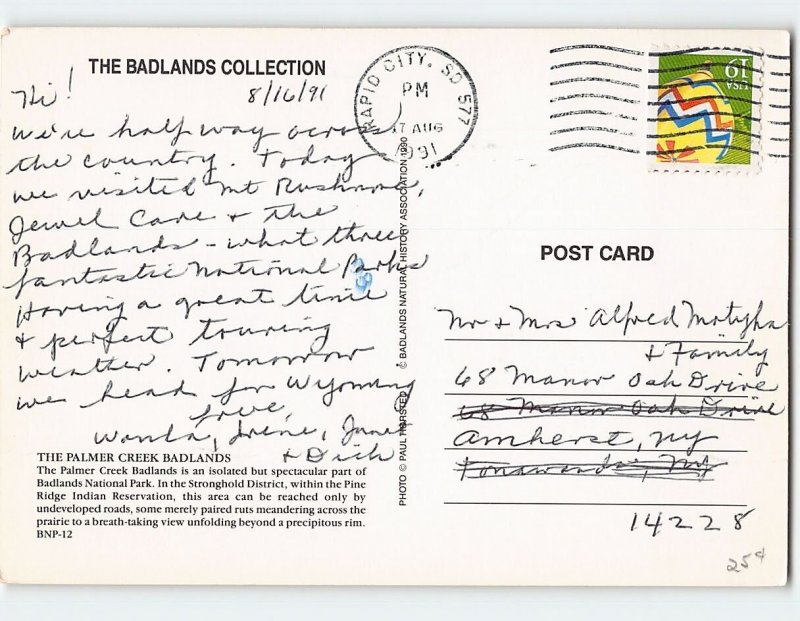 THE BADLANDS COLLECTION
8/16/91
Hi!
We're half way across
the country. Today
we visited Mt Rushmore,
Jewel Cave + the
Badlands - what three
fantastic National Parks
Having a great time
+ perfect touring
weather. Tomorrow
we head for Wyoming
Love,
Wanda, Irene, Janet
+ Dick
THE PALMER CREEK BADLANDS
The Palmer Creek Badlands is an isolated but spectacular part of
Badlands National Park. In the Stronghold District, within the Pine
Ridge Indian Reservation, this area can be reached only by
undeveloped roads, some merely paired ruts meandering across the
prairie to a breath-taking view unfolding beyond a precipitous rim.
BNP-12
PHOTO © PAUL HORSTED © BADLANDS NATURAL HISTORY ASSOCIATION 1990
RAPID CITY, SD 577
PM
17 AUG
1991
19
USA
POST CARD
Mr + Mrs Alfred Motyka
+ Family
68 Manor Oak Drive
68 Manor Oak Drive
Amherst, NY
Tonawanda, NY
14228
25¢